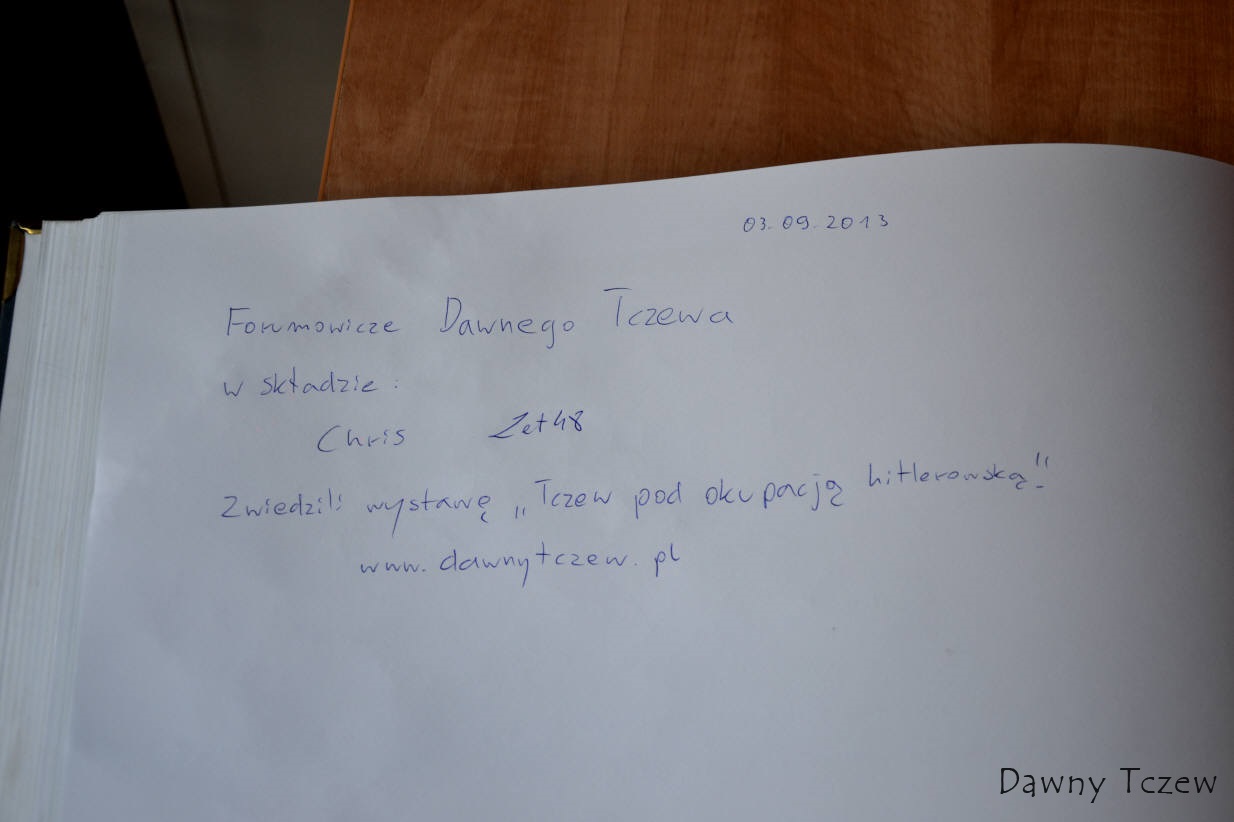 03.09.2013
Forumowicze Dawnego Tczewa
w składzie:
Chris Zet48
Zwiedzili wystawę „Tczew pod okupacją hitlerowską".
www.dawnytczew.pl
Dawny Tczew